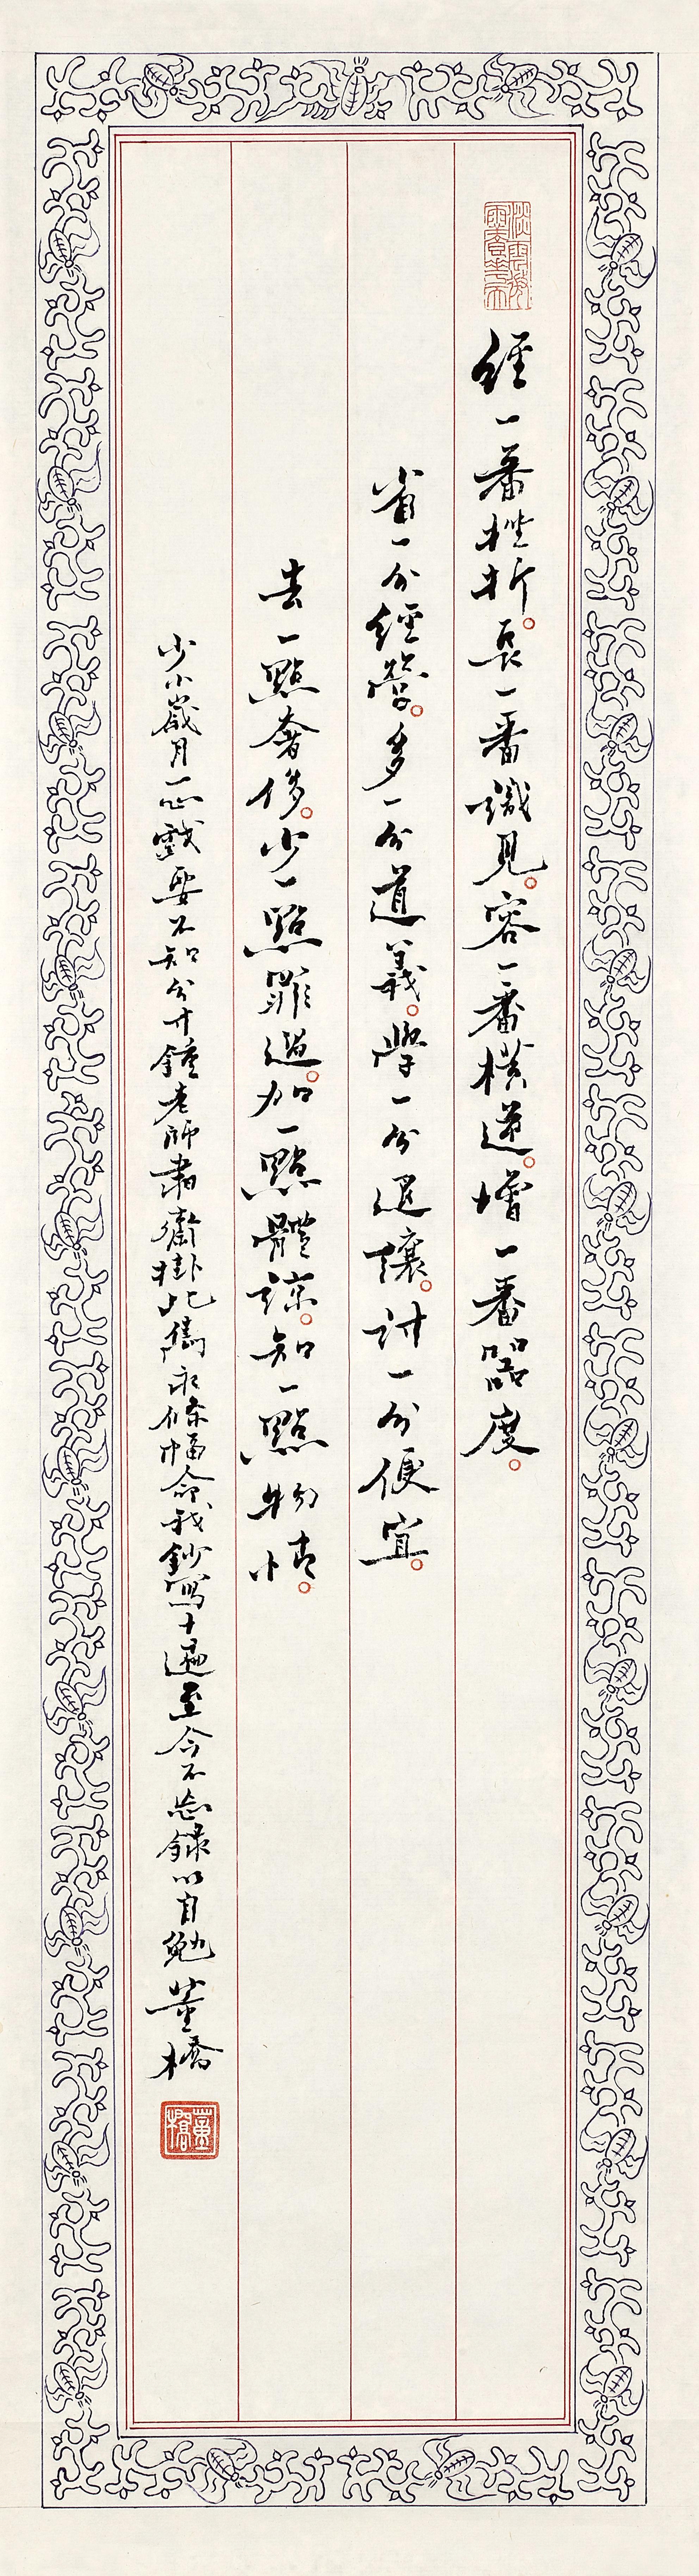 經一番挫折。長一番識見。容一番橫逆。增一番器度。
省一分經營。多一分道義。學一分退讓。討一分便宜。
去一點奢侈。少一點罪過。加一點體諒。知一點物情。
少小歲月一心戲耍不知分寸鍾老師肅齋掛此雋永條幅命我鈔寫十遍至今不忘錄以自勉 董橋
董橋